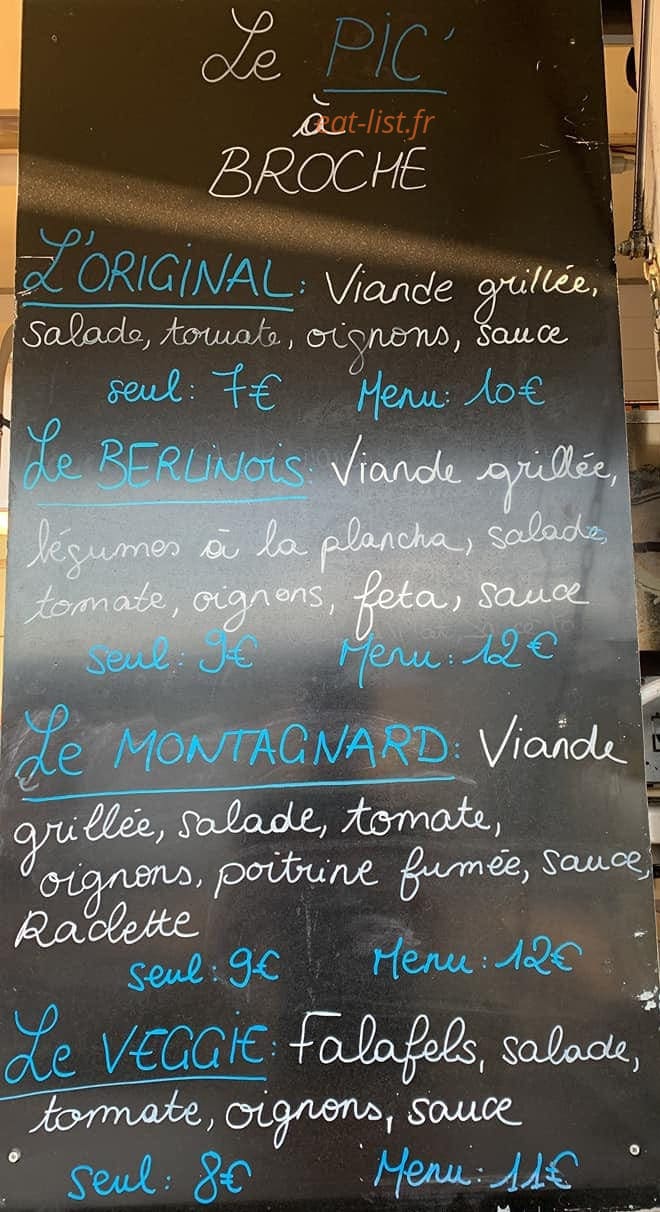 Le PIC'
à
eat-list.fr
BROCHE
L'ORIGINAL: Viande grillée,
salade, tomate, oignons, sauce
seul: 7€ Menu: 10€
Le BERLINOIS: Viande grillée,
légumes à la plancha, salade,
tomate, oignons, feta, sauce
seul: 9€ Menu: 12€
Le MONTAGNARD: Viande
grillée, salade, tomate,
oignons, poitrine fumée, sauce,
Raclette
seul: 9€ Menu: 12€
Le VEGGIE: Falafels, salade,
tomate, oignons, sauce
seul: 8€ Menu: 11€